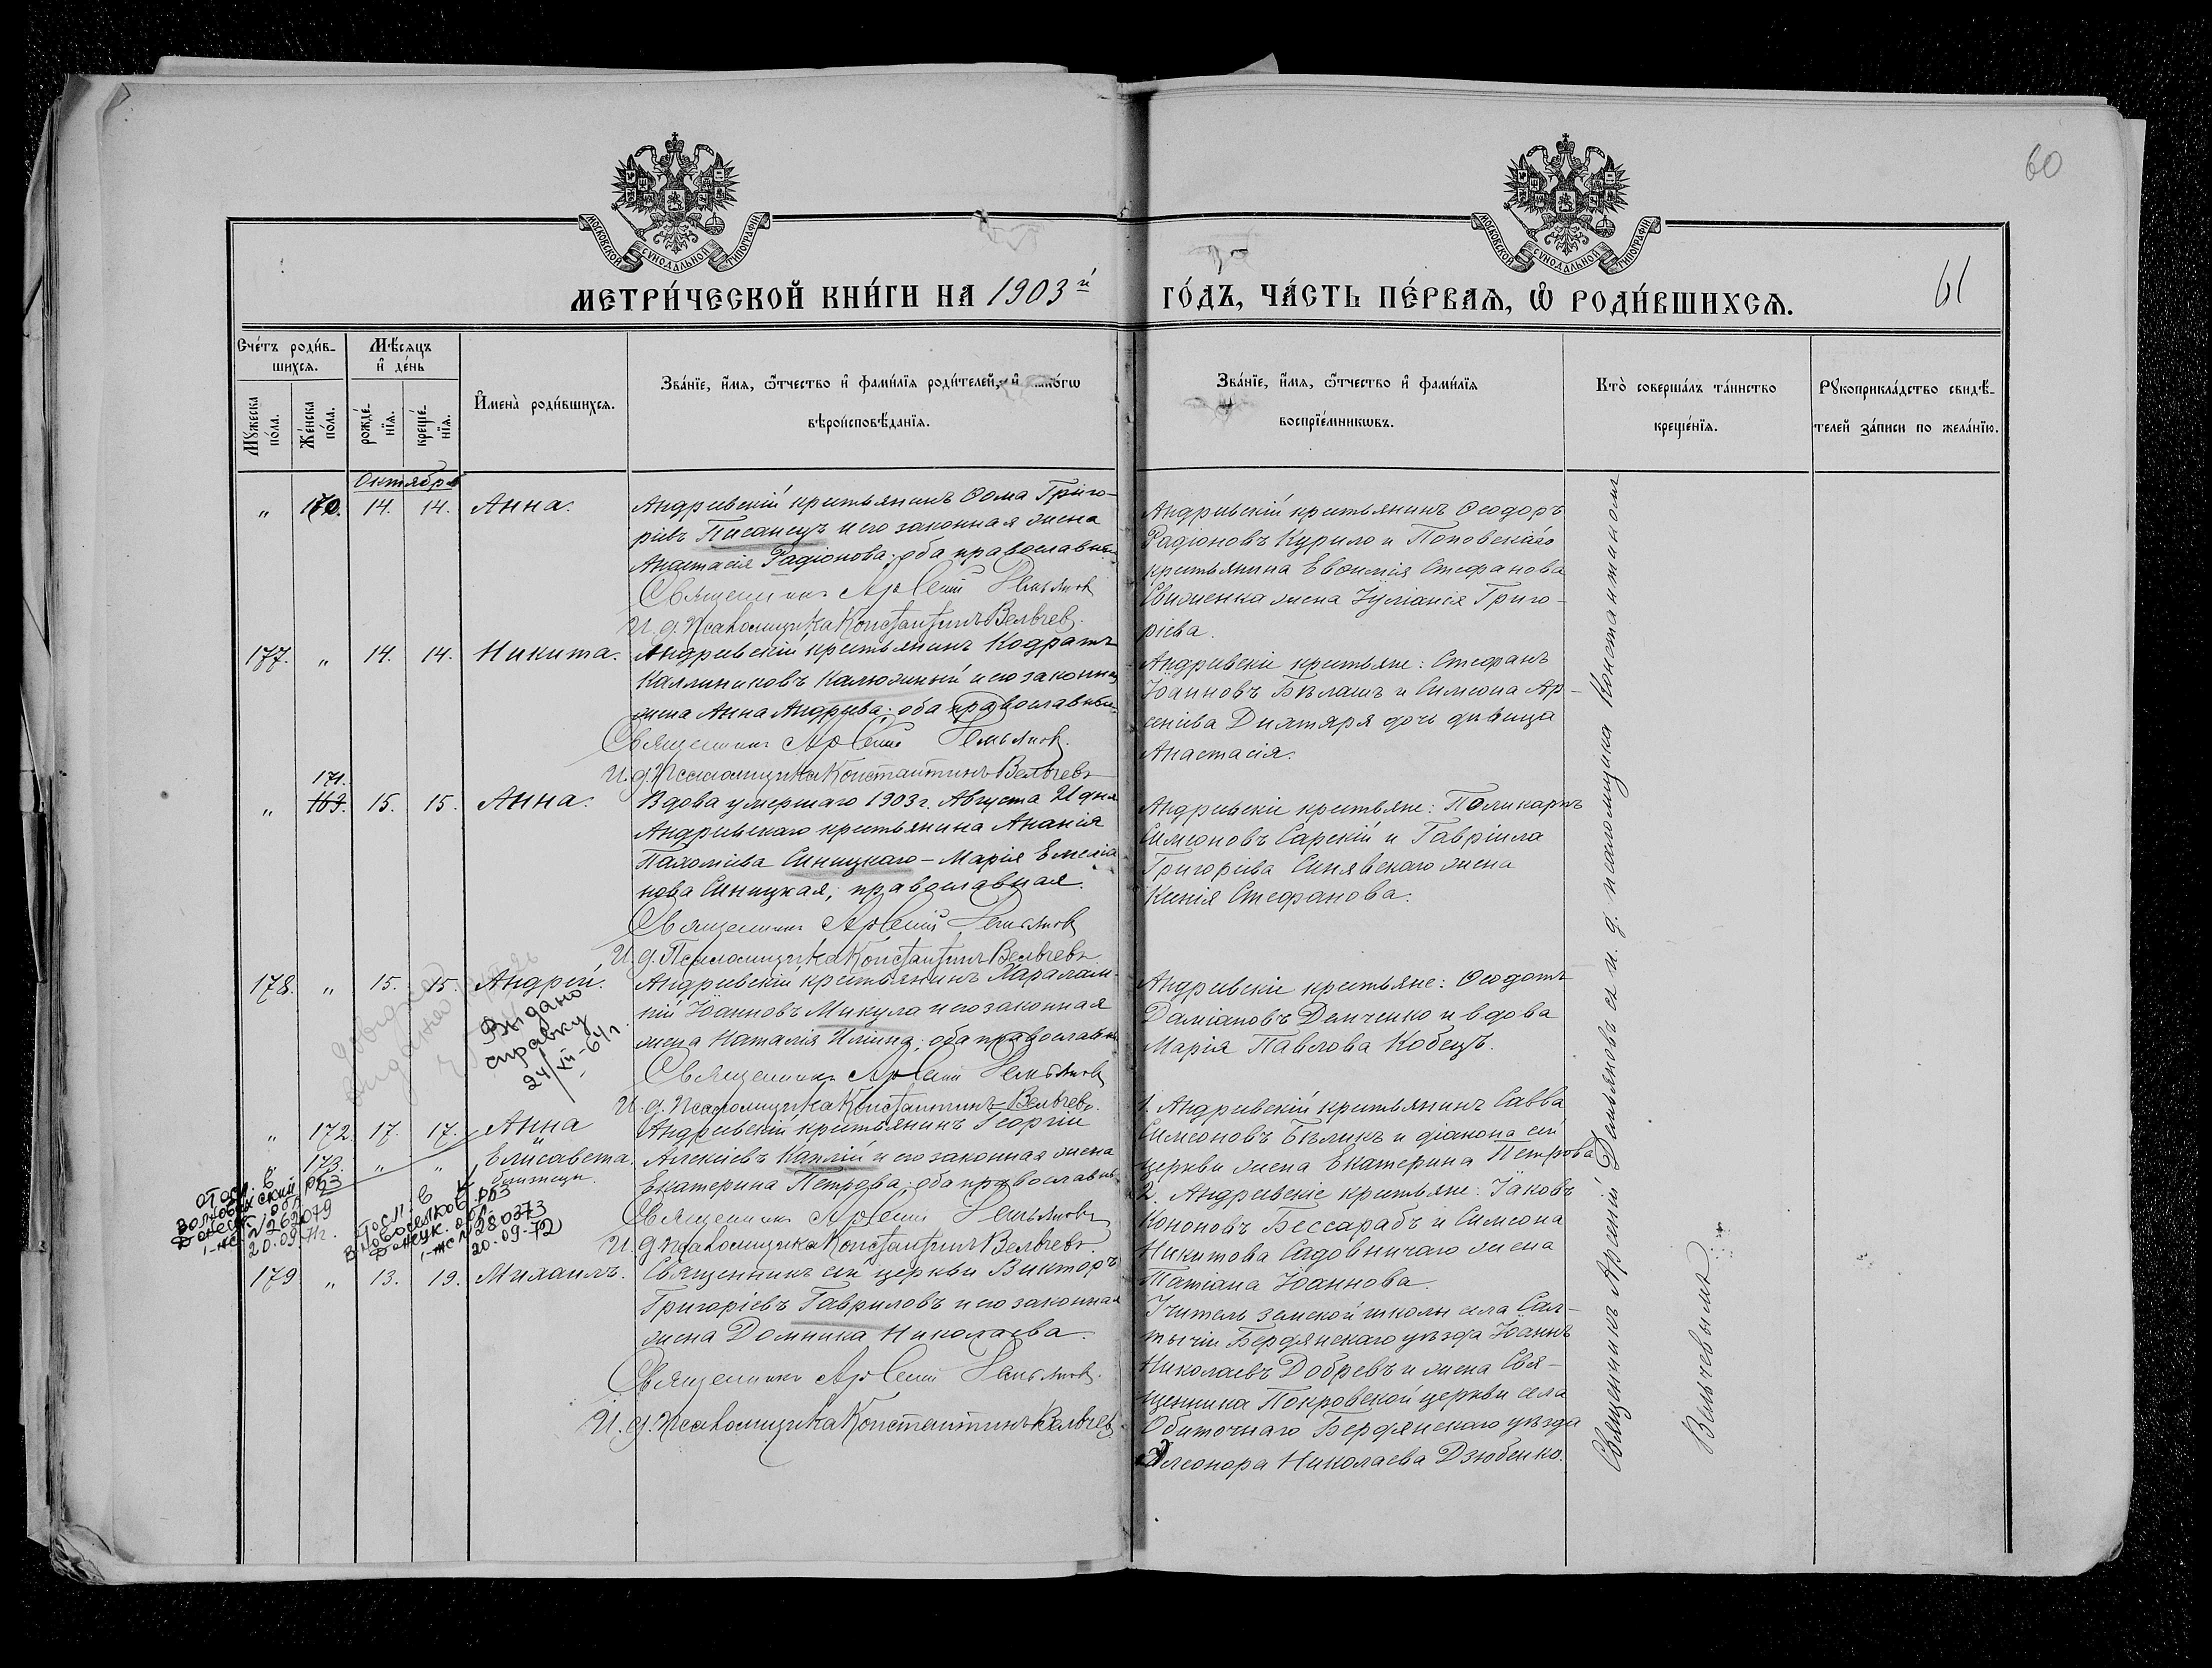 60
МОСКОВСКОЙ СѴНОДАЛЬНОЙ ТИПОГРАФІИ
МОСКОВСКОЙ СѴНОДАЛЬНОЙ ТИПОГРАФІИ
МЕТРИ́ЧЕСКОЙ КНИ́ГИ НА 1903й
ГО́ДЪ, ЧА́СТЬ ПЕ́РВАѦ, Ѽ РОДИ́ВШИХСѦ.
61
Сче́тъ роди́в-
шихсѧ.
Мѣ́сѧцъ
и҆ де́нь
Мꙋ́жеска по́ла.
Же́нска по́ла.
рожде́-
нїѧ.
креще́-
нїѧ.
И҆мена̀ роди́вшихсѧ.
Зва́нїе, и҆́мѧ, ѻ҆́тчество и҆ фами́лїѧ роди́телей, и҆
вѣроисповѣ́данїѧ.
Зва́нїе, и҆́мѧ, ѻ҆́тчество и҆ фами́лїѧ
воспрїе́мникѡвъ.
Кто̀ соверша́лъ та́инство
креще́нїѧ.
Рꙋкоприкла́дство свидѣ́-
телей за́писи по жела́нїю.
Октябрь
" 170. 14. 14. Анна.
Андреевскій крестьянинъ Ѳома Григо-
ріевъ Пасанецъ и его законная жена
Анастасія Радіонова; оба православные
Священникъ Арсеній Демьяновъ
И. д. Псаломщика Константинъ Вельчевъ.
Андреевскій крестьянинъ Ѳеодоръ
Радіоновъ Курило и Поповскаго
крестьянина Евѳимія Стефанова
жена Іуліанія Григо-
ріева.
177. " 14. 14. Никита.
Андреевскій крестьянинъ Кодратъ
Каллиниковъ Калюжный и его законная
жена Анна Андреева; оба православные
Священникъ Арсеній Демьяновъ.
И. д. Псаломщика Константинъ Вельчевъ
Андреевскіе крестьяне: Стефанъ
Іоанновъ Бѣлашъ и Симеона Ар-
сеніева Дихтяря дочь дѣвица
Анастасія.
171.
" 163. 15. 15. Анна.
Вдова умершаго 1903 г. Августа 21 дня
Андреевскаго крестьянина Ананія
Пахоміева Синицкаго – Марія Емеліа
нова Синицкая; православная.
Священникъ Арсеній Демьяновъ
И. д. Псаломщика Константинъ Вельчевъ.
Андреевскіе крестьяне: Поликарпъ
Симеоновъ Сарскій и Гавріила
Григоріева Синявскаго жена
Ксенія Стефанова.
178. " 15. 15. Андрей.
Выдано
справку
24/XII-64 г.
Андреевскій крестьянинъ Харалам-
пій Іоанновъ Микула и его законная
жена Наталія Иліина; оба православные
Священникъ Арсеній Демьяновъ
И. д. Псаломщика Константинъ Вельчевъ.
Андреевскіе крестьяне: Ѳеодотъ
Даміановъ Демченко и вдова
Марія Павлова Кобецъ.
" 172. 17. 17. Анна
" 173. " " Елисавета.
близнецы.
Андреевскій крестьянинъ Георгій
Алексіевъ Каплій и его законная жена
Екатерина Петрова; оба православные
Священникъ Арсеній Демьяновъ
И. д. Псаломщика Константинъ Вельчевъ.
1. Андреевскій крестьянинъ Савва
Симеоновъ Бѣликъ и діакона сей
церкви жена Екатерина Петрова
2. Андреевскіе крестьяне: Іаковъ
Кононовъ Бессарабъ и Симеона
Никитова Садовничаго жена
Татіана Іоаннова.
20.09.71г.
Посл. в
В. Новоселков. рбз
Донецк. обл.
I-ЖС № 280373
20.09-72
179 " 13. 19. Михаилъ.
Священникъ сей церкви Викторъ
Григоріевъ Гавриловъ и его законная
жена Домника Николаева.
Священникъ Арсеній Демьяновъ.
И. д. Псаломщика Константинъ Вельчевъ.
Учитель земской школы села Сал-
тычіи Бердянскаго уѣзда Іоаннъ
Николаевъ Добревъ и жена Свя-
щенника Покровской церкви села
Обиточнаго Бердянскаго уѣзда
Элеонора Николаева Дзюбенко.
Священникъ Арсеній Демьяновъ съ и. д. псаломщика Константиномъ
Вельчевымъ